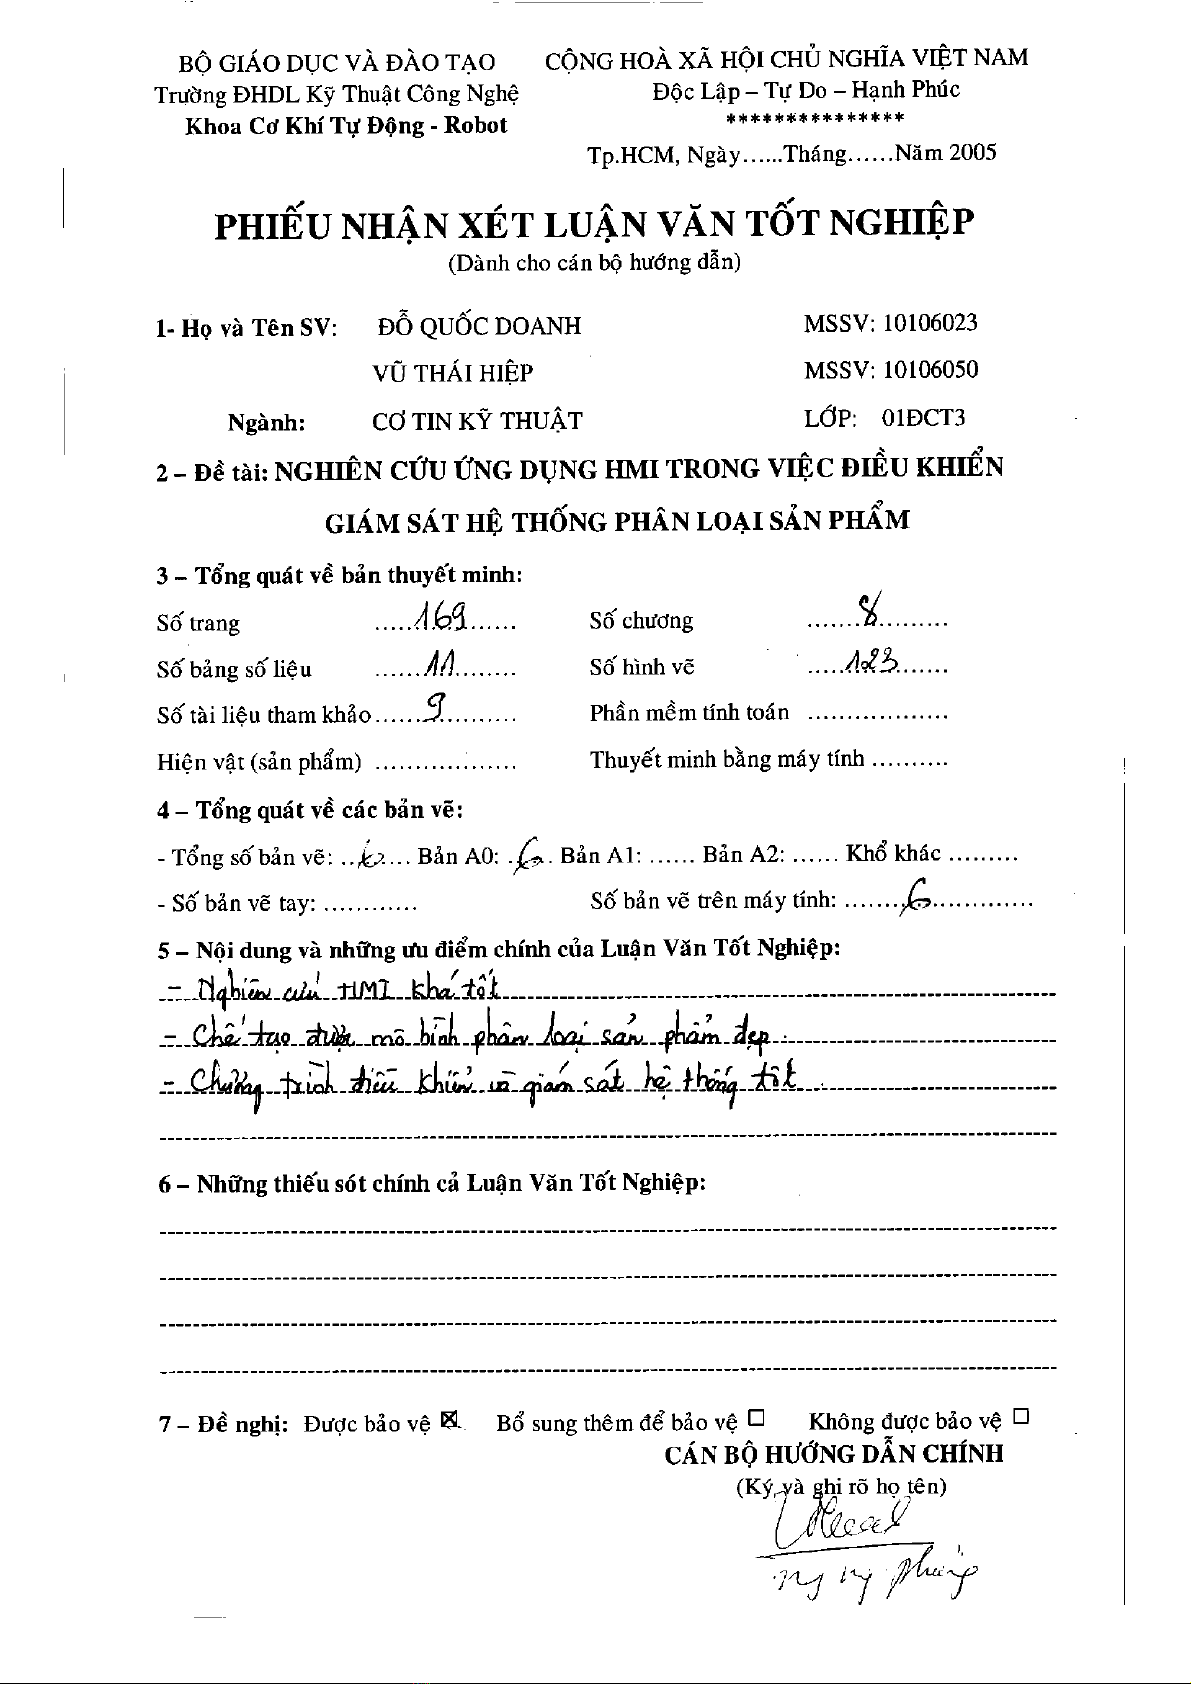 BỘ GIÁO DỤC VÀ ĐÀO TẠO
Trường ĐHDL Kỹ Thuật Công Nghệ
Khoa Cơ Khí Tự Động - Robot
CỘNG HOÀ XÃ HỘI CHỦ NGHĨA VIỆT NAM
Độc Lập – Tự Do – Hạnh Phúc
***************
Tp.HCM, Ngày......Tháng......Năm 2005
PHIẾU NHẬN XÉT LUẬN VĂN TỐT NGHIỆP
(Dành cho cán bộ hướng dẫn)
1- Họ và Tên SV: ĐỖ QUỐC DOANH MSSV: 10106023
VŨ THÁI HIỆP MSSV: 10106050
Ngành: CƠ TIN KỸ THUẬT LỚP: 01ĐCT3
2 – Đề tài: NGHIÊN CỨU ỨNG DỤNG HMI TRONG VIỆC ĐIỀU KHIỂN
GIÁM SÁT HỆ THỐNG PHÂN LOẠI SẢN PHẨM
3 – Tổng quát về bản thuyết minh:
Số trang .....169...... Số chương .......8.........
Số bảng số liệu ......11........ Số hình vẽ .....123.......
Số tài liệu tham khảo......9.......... Phần mềm tính toán ..................
Hiện vật (sản phẩm) .................. Thuyết minh bằng máy tính ..........
4 – Tổng quát về các bản vẽ:
- Tổng số bản vẽ: ..6.... Bản A0: .6.. Bản A1: ...... Bản A2: ...... Khổ khác .........
- Số bản vẽ tay: ............ Số bản vẽ trên máy tính: .......6.............
5 – Nội dung và những ưu điểm chính của Luận Văn Tốt Nghiệp:
- Nghiên cứu HMI khá tốt
- Chế tạo được mô hình phân loại sản phẩm đẹp.
- Chương trình điều khiển và giám sát hệ thống tốt.
6 – Những thiếu sót chính cả Luận Văn Tốt Nghiệp:
7 – Đề nghị: Được bảo vệ ☒ Bổ sung thêm để bảo vệ ☐ Không được bảo vệ ☐
CÁN BỘ HƯỚNG DẪN CHÍNH
(Ký và ghi rõ họ tên)